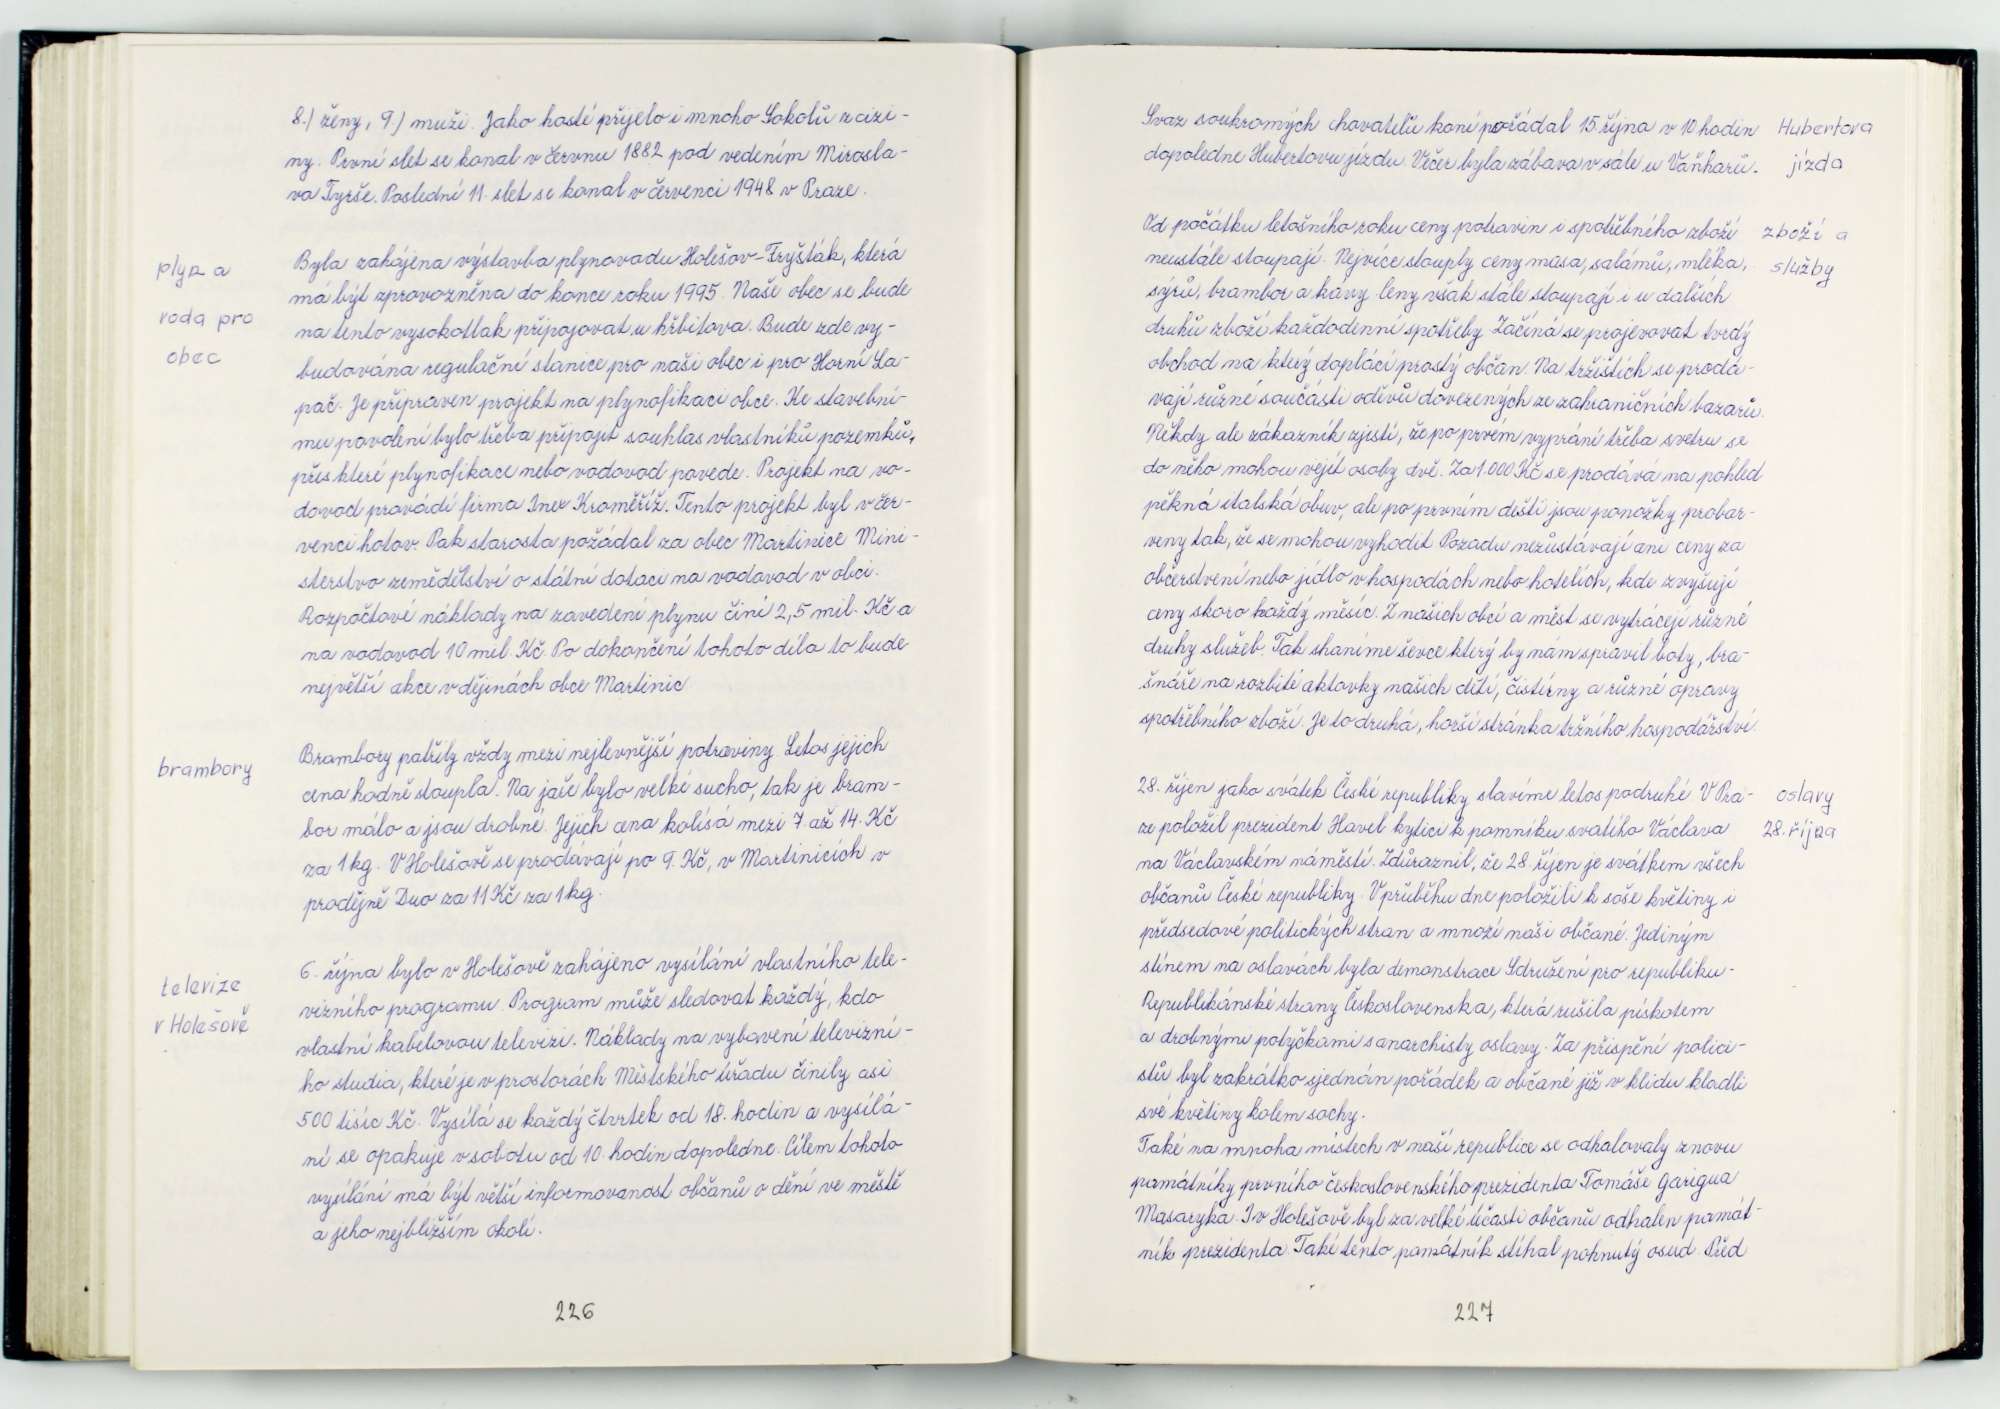 8.) ženy, 9.) muži. Jako hosté přijelo i mnoho Sokolů z cizi-
ny. První slet se konal v červnu 1882 pod vedením Mirosla-
va Tyrše. Poslední 11. slet se konal v červenci 1948 v Praze.
plyn a
voda pro
obec
Byla zahájena výstavba plynovodu Holešov-Fryšták, která
má být zprovozněna do konce roku 1995. Naše obec se bude
na tento vysokotlak připojovat u hřbitova. Bude zde vy-
budována regulační stanice pro naši obec i pro Horní La-
pač. Je připraven projekt na plynofikaci obce. Ke stavební-
mu povolení bylo třeba připojit souhlas vlastníků pozemků,
přes které plynofikace nebo vodovod povede. Projekt na vo-
dovod provádí firma Inex Kroměříž. Tento projekt byl v čer-
venci hotov. Pak starosta požádal za obec Martinice Mini-
sterstvo zemědělství o státní dotaci na vodovod v obci.
Rozpočtové náklady na zavedení plynu činí 2,5 mil. Kč a
na vodovod 10 mil. Kč. Po dokončení tohoto díla to bude
největší akce v dějinách obce Martinic.
brambory
Brambory patřily vždy mezi nejlevnější potraviny. Letos jejich
cena hodně stoupla. Na jaře bylo velké sucho, tak je bram-
bor málo a jsou drobné. Jejich cena kolísá mezi 7 až 14.Kč
za 1kg. V Holešově se prodávají po 9.Kč, v Martinicích v
prodejně Duo za 11Kč za 1kg.
televize
v Holešově
6. října bylo v Holešově zahájeno vysílání vlastního tele-
vizního programu. Program může sledovat každý, kdo
vlastní kabelovou televizi. Náklady na vybavení televizní-
ho studia, které je v prostorách Městského úřadu činily asi
500 tisíc Kč. Vysílá se každý čtvrtek od 18. hodin a vysílá-
ní se opakuje v sobotu od 10. hodin dopoledne. Cílem tohoto
vysílání má být větší informovanost občanů o dění ve městě
a jeho nejbližším okolí.
226
Svaz soukromých chovatelů koní pořádal 15. října v 10 hodin
dopoledne Hubertovu jízdu. Večer byla zábava v sále u Vaňharů.
Hubertova
jízda
Od počátku letošního roku ceny potravin i spotřebního zboží
neustále stoupají. Nejvíce stouply ceny masa, salámů, mléka,
sýrů, brambor a kávy. Ceny však stále stoupají i u dalších
druhů zboží každodenní spotřeby. Začíná se projevovat tvrdý
obchod na který doplácí prostý občan. Na tržištích se prodá-
vají různé součásti oděvů dovezených ze zahraničních bazarů.
Někdy ale zákazník zjistí, že po prvém vyprání třeba svetru se
do něho mohou vejít osoby dvě. Za 1.000 Kč se prodává na pohled
pěkná italská obuv, ale po prvním dešti jsou ponožky probar-
veny tak, že se mohou vyhodit. Pozadu nezůstávají ani ceny za
občerstvení nebo jídlo v hospodách nebo hotelích, kde zvyšují
ceny skoro každý měsíc. Z našich obcí a měst se vytrácejí různé
druhy služeb. Tak sháníme ševce který by nám spravil boty, bra-
šnáře na rozbité aktovky našich dětí, čistírny a různé opravy
spotřebního zboží. Je to druhá, horší stránka tržního hospodářství.
zboží a
služby
28. říjen jako svátek České republiky slavíme letos podruhé. V Pra-
ze položil prezident Havel kytici k pomníku svatého Václava
na Václavském náměstí. Zdůraznil, že 28. říjen je svátkem všech
občanů České republiky. V průběhu dne položili k soše květiny i
předsedové politických stran a mnozí naši občané. Jediným
stínem na oslavách byla demonstrace Sdružení pro republiku-
Republikánské strany Československa, která rušila pískotem
a drobnými potyčkami s anarchisty oslavy. Za přispění polici-
stů byl zakrátko sjednán pořádek a občané již v klidu kladli
své květiny kolem sochy.
Také na mnoha místech v naší republice se odhalovaly znovu
památníky prvního československého prezidenta Tomáše Garigua
Masaryka. I v Holešově byl za velké účasti občanů odhalen památ-
ník prezidenta. Také tento památník stíhal pohnutý osud. Před
oslavy
28. října
227